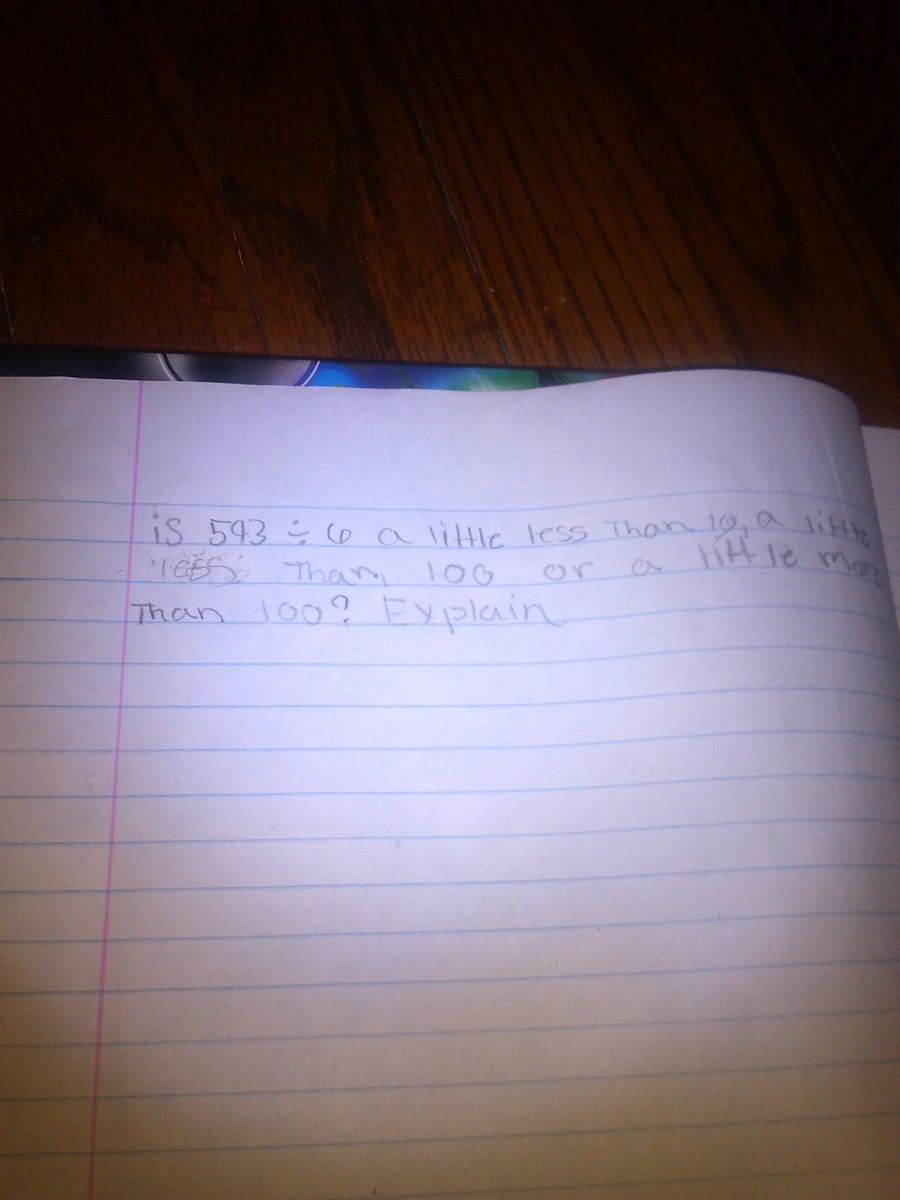 is 593 ÷ 6 a little less Than 10, a little
less Than 100 or a little more
Than 100? Explain